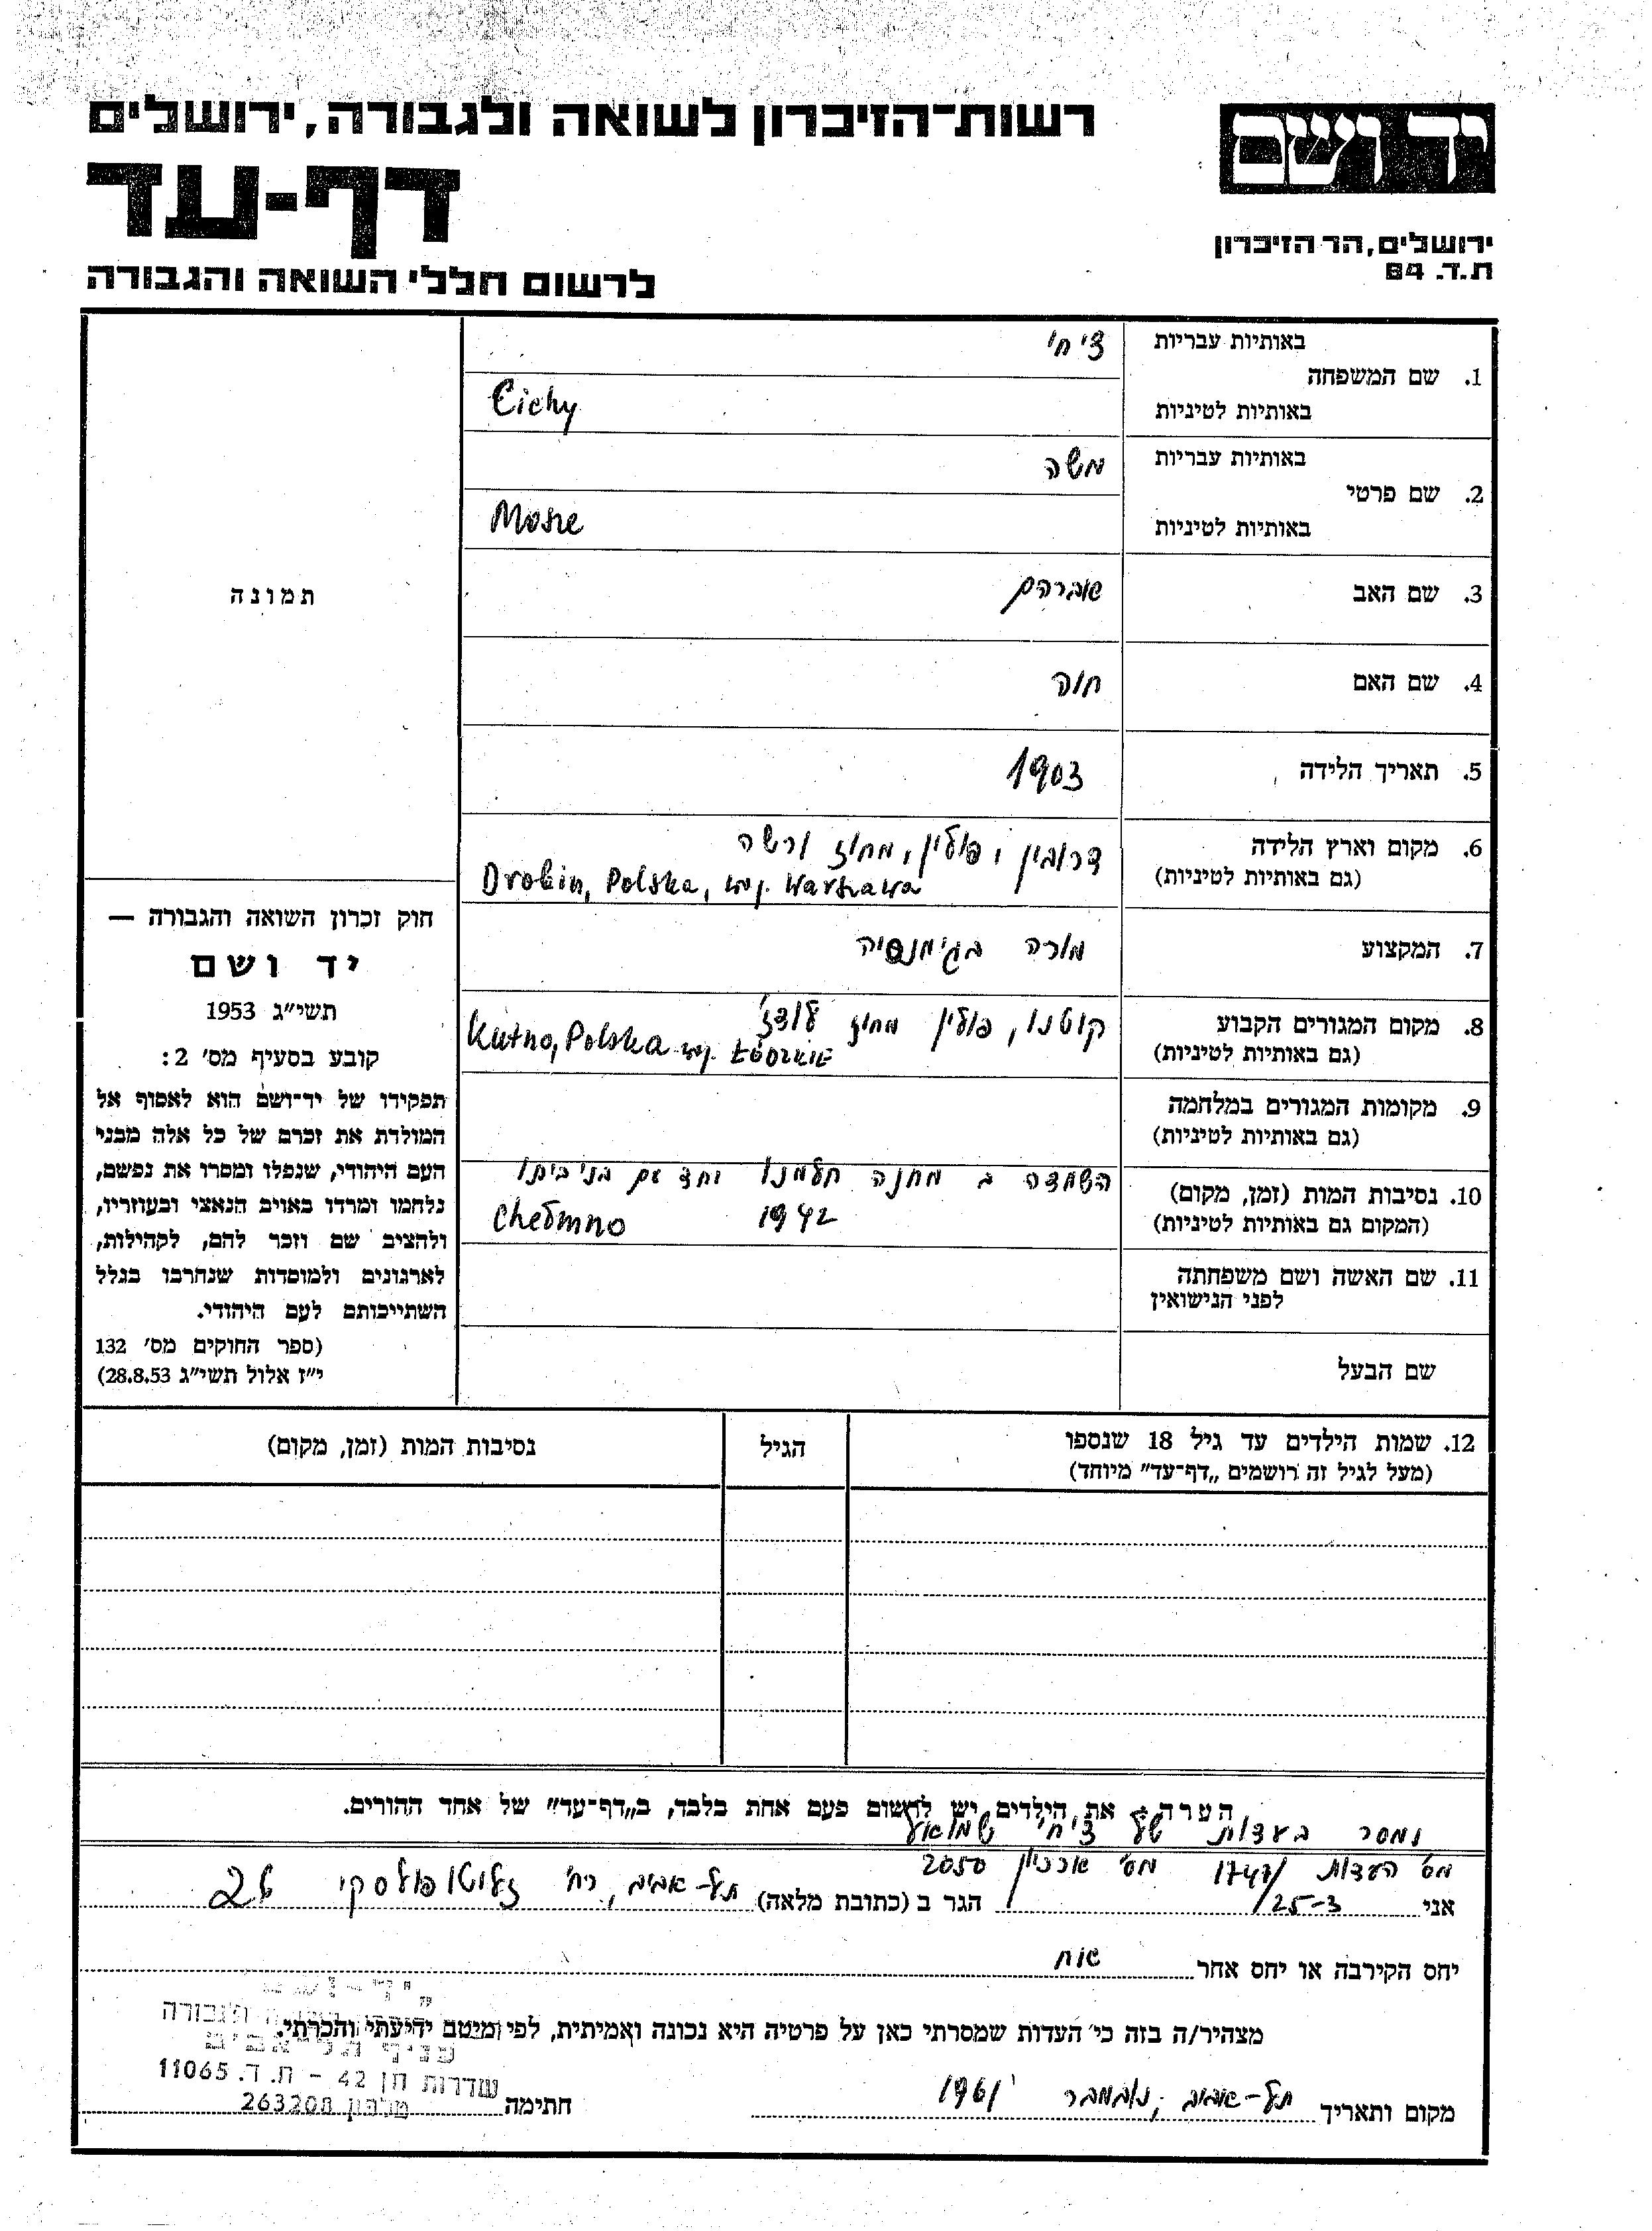 רשות־הזיכרון לשואה ולגבורה, ירושלים
יד ושם
דף-עד
ירושלים, הר הזיכרון
ת.ד. 84
לרשום חללי השואה והגבורה
באותיות עבריות
ציחי
1. שם המשפחה
באותיות לטיניות
Cichy
באותיות עבריות
משה
2. שם פרטי
באותיות לטיניות
Mosze
3. שם האב
אברהם
4. שם האם
חוה
5. תאריך הלידה
1903
6. מקום וארץ הלידה
(גם באותיות לטיניות)
דרובין, פולין, מחוז ורשה
Drobin, Polska, woj. Warszawa
7. המקצוע
מורה בגימנסיה
8. מקום המגורים הקבוע
(גם באותיות לטיניות)
קוטנו, פולין מחוז לודז'
Kutno, Polska woj. Łódzkie
9. מקומות המגורים במלחמה
(גם באותיות לטיניות)
10. נסיבות המות (זמן, מקום)
(המקום גם באותיות לטיניות)
השמדה ב מחנה חלמנו יחד עם בני ביתו
Chełmno 1942
11. שם האשה ושם משפחתה
לפני הנישואין
שם הבעל
תמונה
חוק זכרון השואה והגבורה —
יד ושם
תשי״ג 1953
קובע בסעיף מס׳ 2:
תפקידו של יד־ושם הוא לאסוף אל
המולדת את זכרם של כל אלה מבני
העם היהודי, שנפלו ומסרו את נפשם,
נלחמו ומרדו באויב הנאצי ובעוזריו,
ולהציב שם וזכר להם, לקהילות,
לארגונים ולמוסדות שנחרבו בגלל
השתייכותם לעם היהודי.
(ספר החוקים מס׳ 132
י״ז אלול תשי״ג 28.8.53)
12. שמות הילדים עד גיל 18 שנספו
(מעל לגיל זה רושמים „דף־עד״ מיוחד)
הגיל
נסיבות המות (זמן, מקום)
הערה: את הילדים יש לרשום פעם אחת בלבד, ב„דף־עד״ של אחד ההורים.
נמסר בעדות של ציחי שמואל
מס' העדות 1747/ מס' ארכיון 2050
אני 25-3/ הגר ב (כתובת מלאה) תל-אביב, רח' זלוטופולסקי 26
יחס הקירבה או יחס אחר אח
מצהיר/ה בזה כי העדות שמסרתי כאן על פרטיה היא נכונה ואמיתית, לפי מיטב ידיעתי והכרתי.
מקום ותאריך תל-אביב, נובמבר 1961
חתימה
"יד-ושם"
סניף תל אביב
שדרות חן 42 - ת.ד. 11065
טלפון 263208